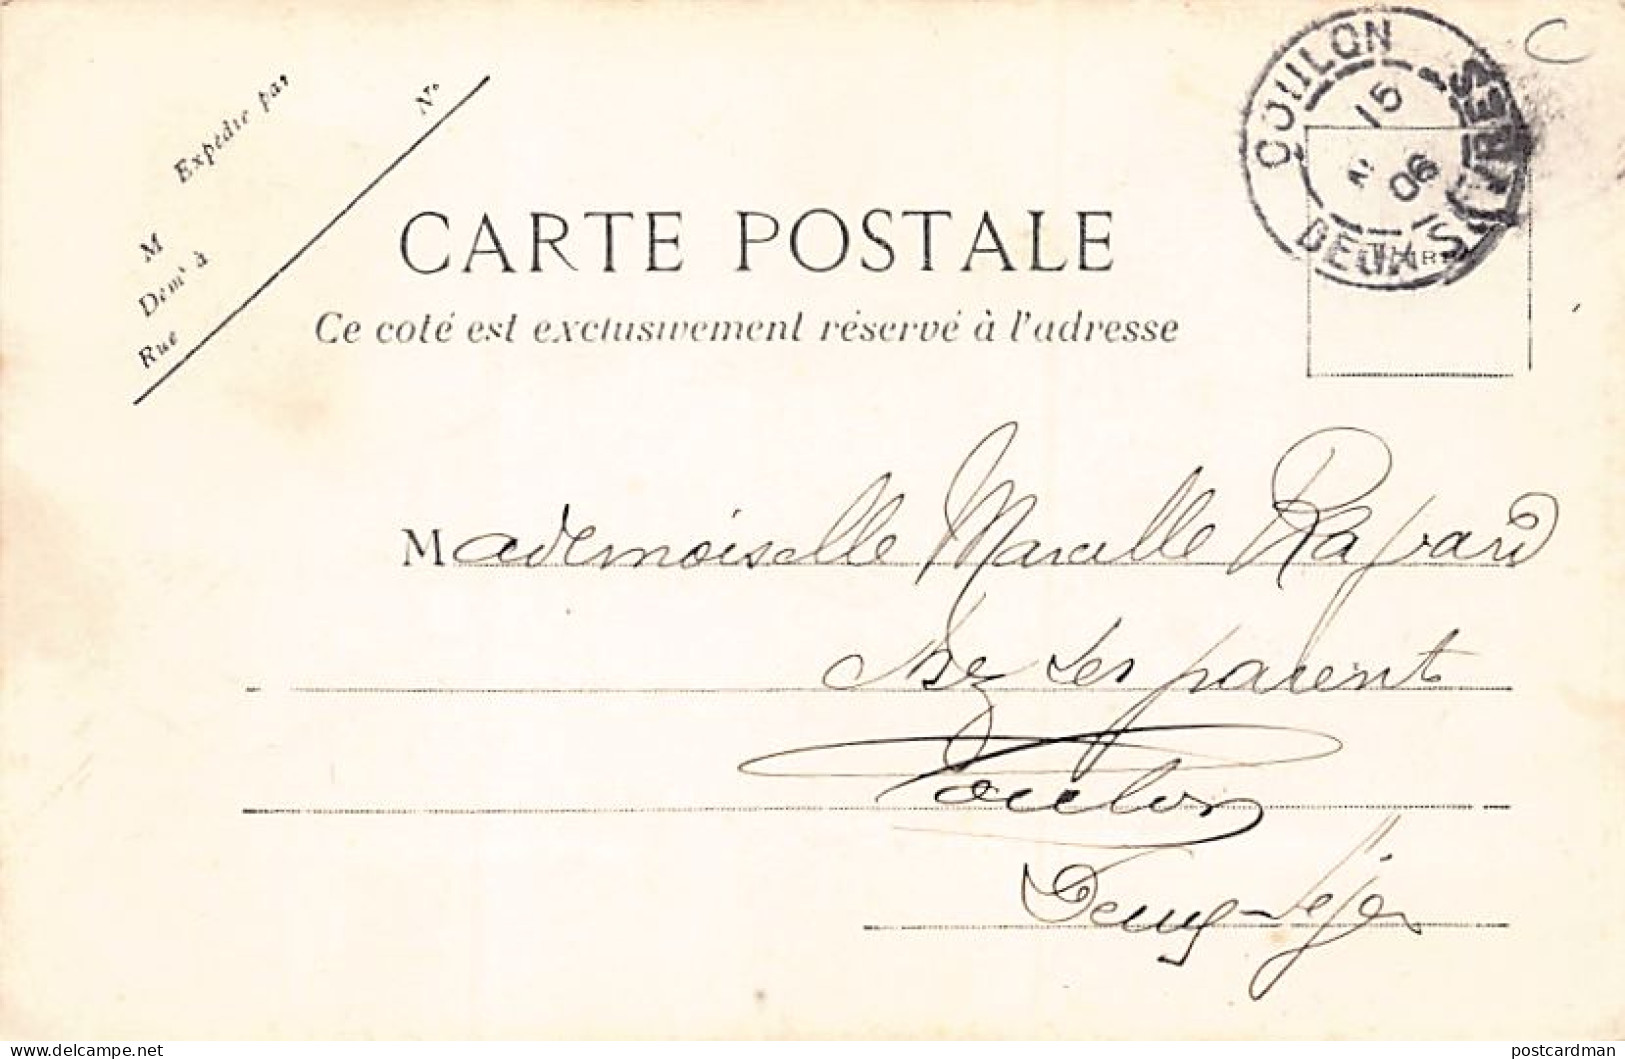 Expédié par
M
Demt à
Rue
No
COULON
DEUX-SÈVRES
15
06
C
CARTE POSTALE
Ce coté est exclusivement réservé à l'adresse
Mademoiselle Marcelle
chez ses parents
Coulon
Deux-Sèvres
Delcampe.net
postcardman